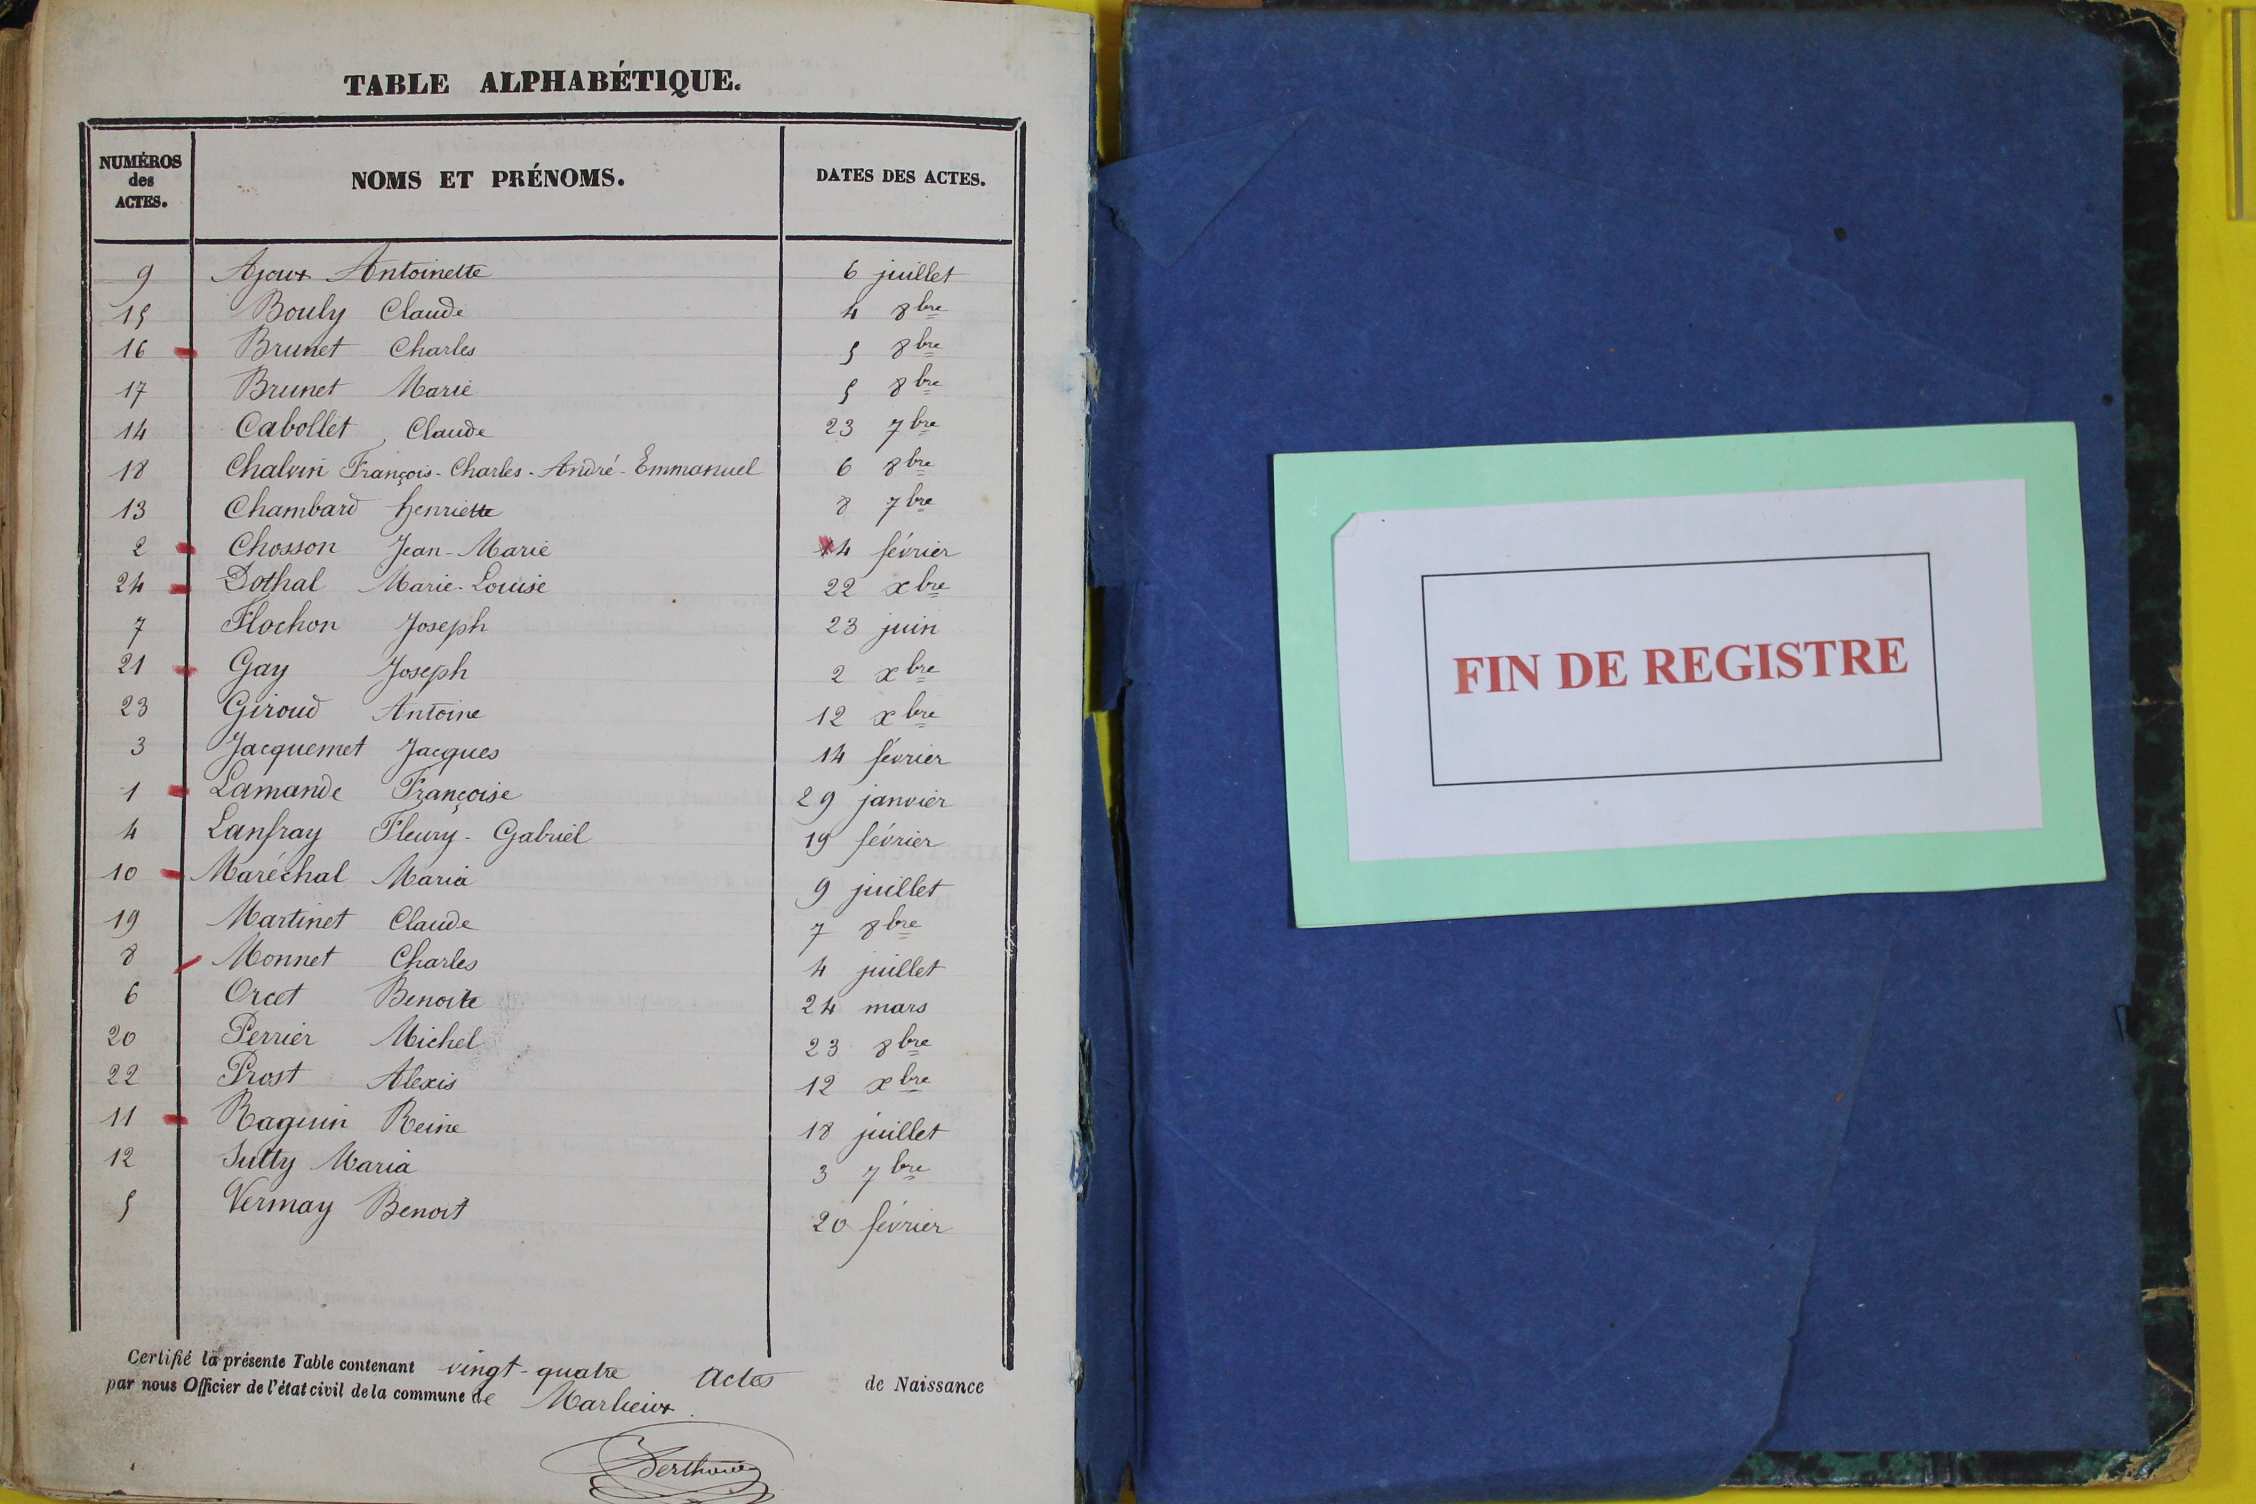 TABLE ALPHABÉTIQUE.
NUMÉROS des ACTES. NOMS ET PRÉNOMS. DATES DES ACTES.
9 Ajoux Antoinette 6 juillet
15 Bouly Claude 4 8bre
16 Brunet Charles 5 8bre
17 Brunet Marie 5 8bre
14 Cabollet Claude 23 7bre
18 Chalvin François-Charles-André-Emmanuel 6 8bre
13 Chambard henriette 8 7bre
2 Chosson Jean-Marie 14 février
24 Dothal Marie-Louise 22 xbre
7 Flochon Joseph 23 juin
21 Gay Joseph 2 xbre
23 Giroud Antoine 12 xbre
3 Jacquemet Jacques 14 février
1 Lamande Françoise 29 janvier
4 Lanfray Fleury-Gabriel 19 février
10 Maréchal Maria 9 juillet
19 Martinet Claude 7 8bre
8 Monnet Charles 4 juillet
6 Orcet Benoite 24 mars
20 Perrier Michel 23 8bre
22 Prost Alexis 12 xbre
11 Raguin Reine 18 juillet
12 Sutty Maria 3 7bre
5 Vermay Benoit 20 février
Certifié la présente Table contenant vingt-quatre actes de Naissance
par nous Officier de l'état civil de la commune de Marlieux.
FIN DE REGISTRE